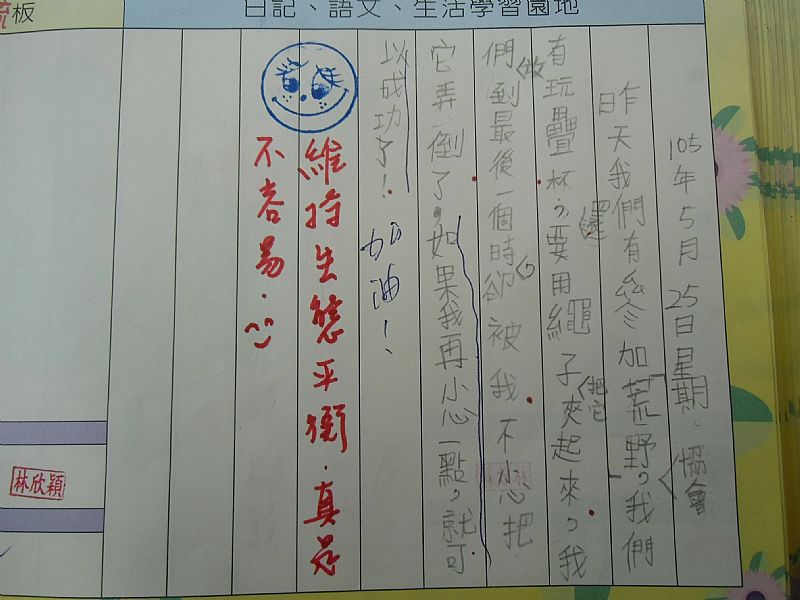 流板
日記、語文、生活學習園地
105年5月25日星期
昨天我們有參加荒野，我們
協會
有玩疊杯，要用繩子夾起來，我
還
把它
們到最後一個時卻被我不小心把
做
它弄倒了，如果我再小心一點，就可
以成功了！
加油！
維持生態平衡，真是
不容易.
林欣穎